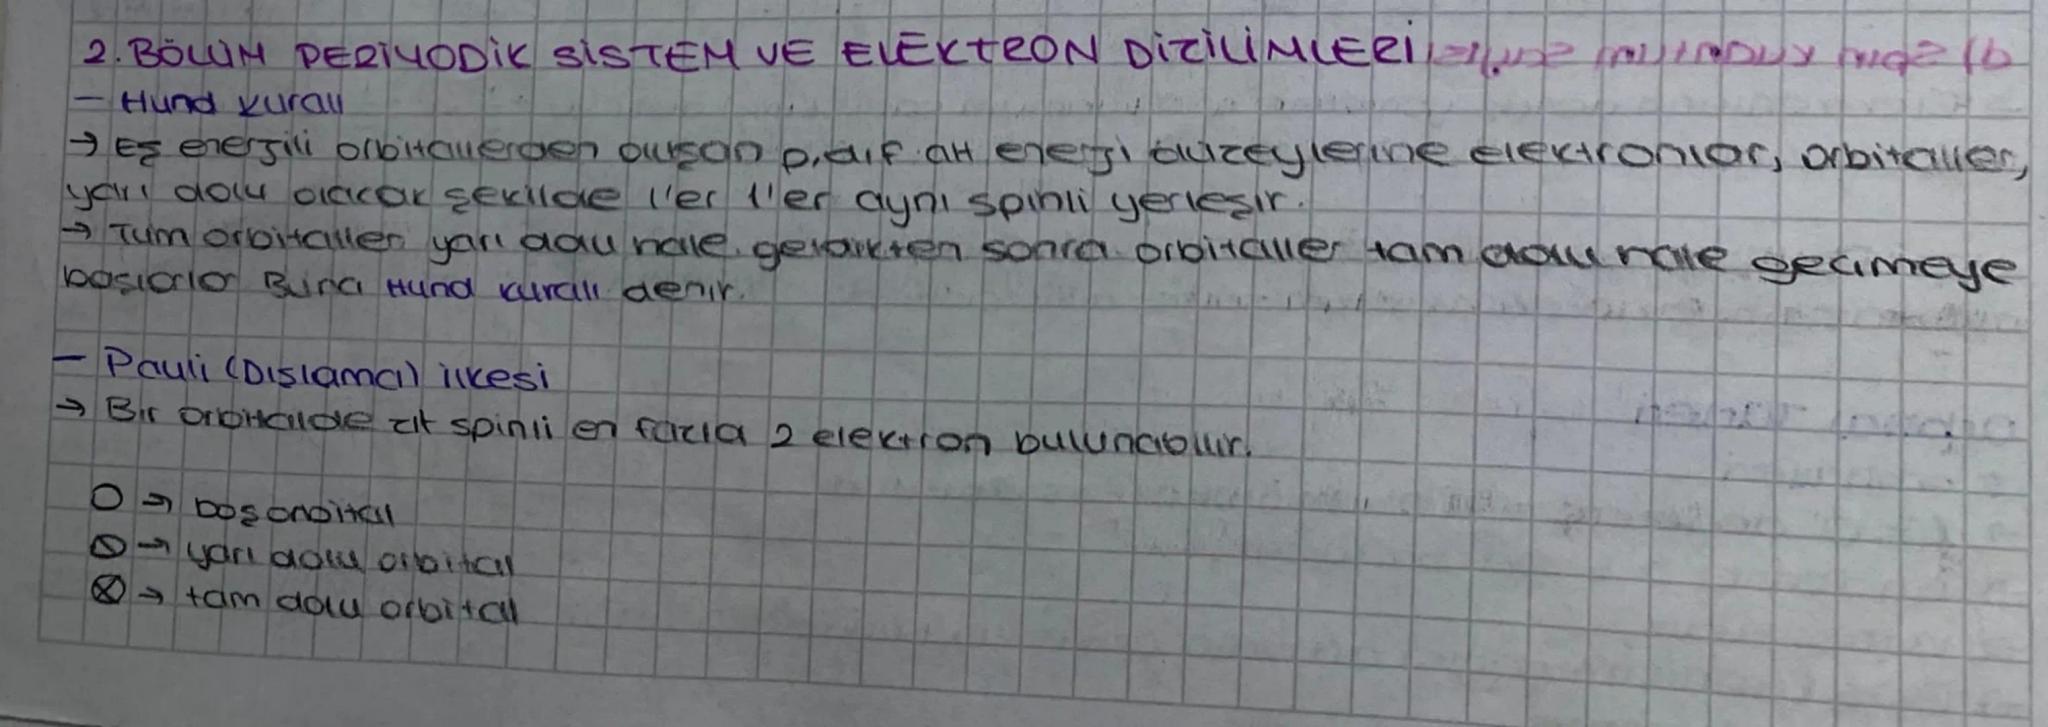 2. BÖLÜM PERİYODİK SİSTEM VE ELEKTRON DİZİLİMLERİ
- Hund kuralı
→ Eş enerjili orbitallerden oluşan p,d,f alt enerji düzeylerine elektronlar, orbitaller,
yarı dolu olacak şekilde 1'er 1'er aynı spinli yerleşir.
→ Tüm orbitaller yarı dolu hale geldikten sonra orbitaller tam dolu hale geçmeye
başlarlar Buna Hund kuralı denir.
- Pauli (Dışlama) ilkesi
→ Bir orbitalde zıt spinli en fazla 2 elektron bulunabilir.
○ → boş orbital
⦸ → yarı dolu orbital
⊗ → tam dolu orbital